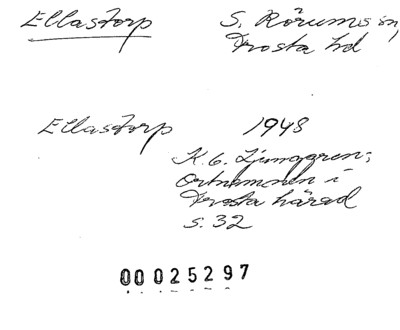 Ellastorp S. Rörums sn,
Frosta hd
Ellastorp 1948
K. G. Ljunggren;
Ortnamnen i
Frosta härad
s. 32
00025297